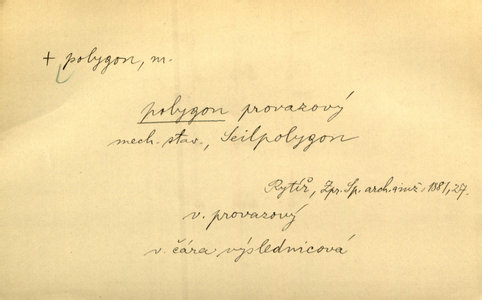 + polygon, m.
polygon provazový
mech. stav., Seilpolygon
Rytíř, Zpr. Sp. arch. a inž. 1881, 27.
v. provazový
v. čára výslednicová